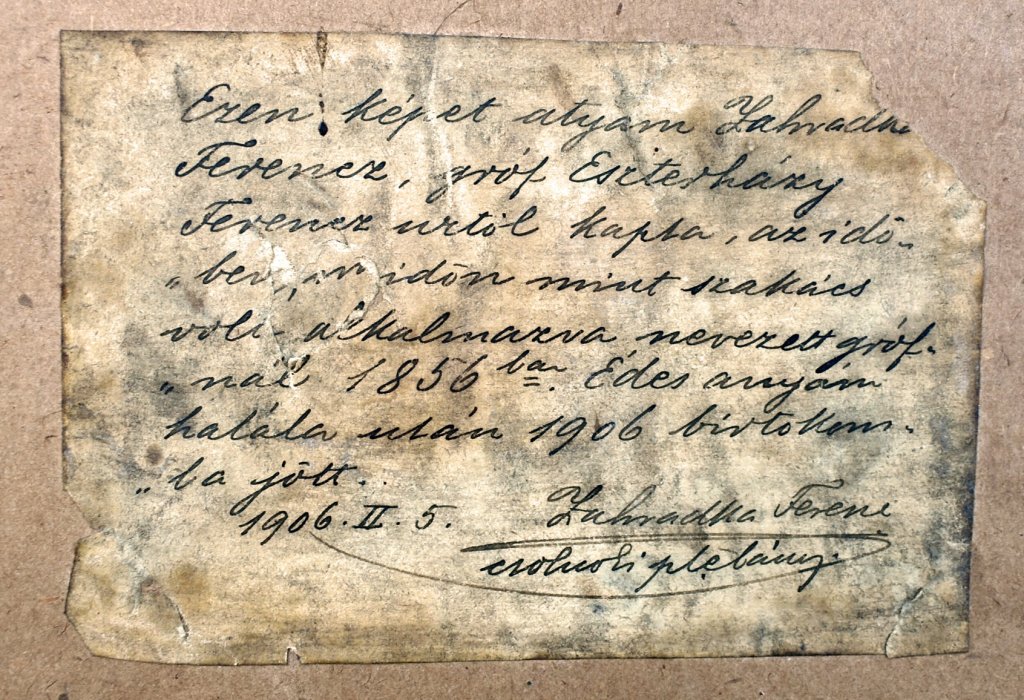 Ezen képet atyám Zahradka
Ferencz, gróf Eszterházy
Ferencz urtól kapta, az idő-
„ben, időn mint szakács
volt alkalmazva nevezett gróf-
„nál 1856 ban. Édes anyám
halála után 1906 birtokom-
„ba jött.
1906. II. 5. Zahradka Ferenc
plébános